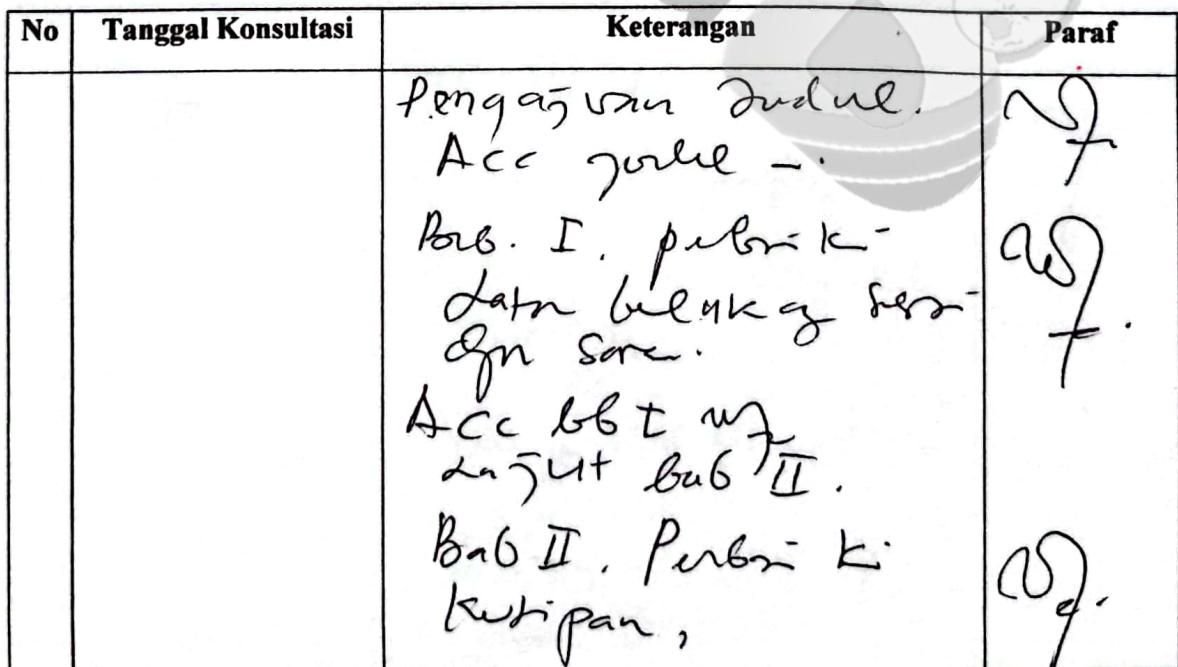 No Tanggal Konsultasi Keterangan Paraf
Pengajuan Judul.
Acc judul -.
Bab. I. perbaiki
Latar belakang sesuai
dgn saran.
Acc bab I
Lanjut bab II.
Bab II. Perbaiki
kutipan,